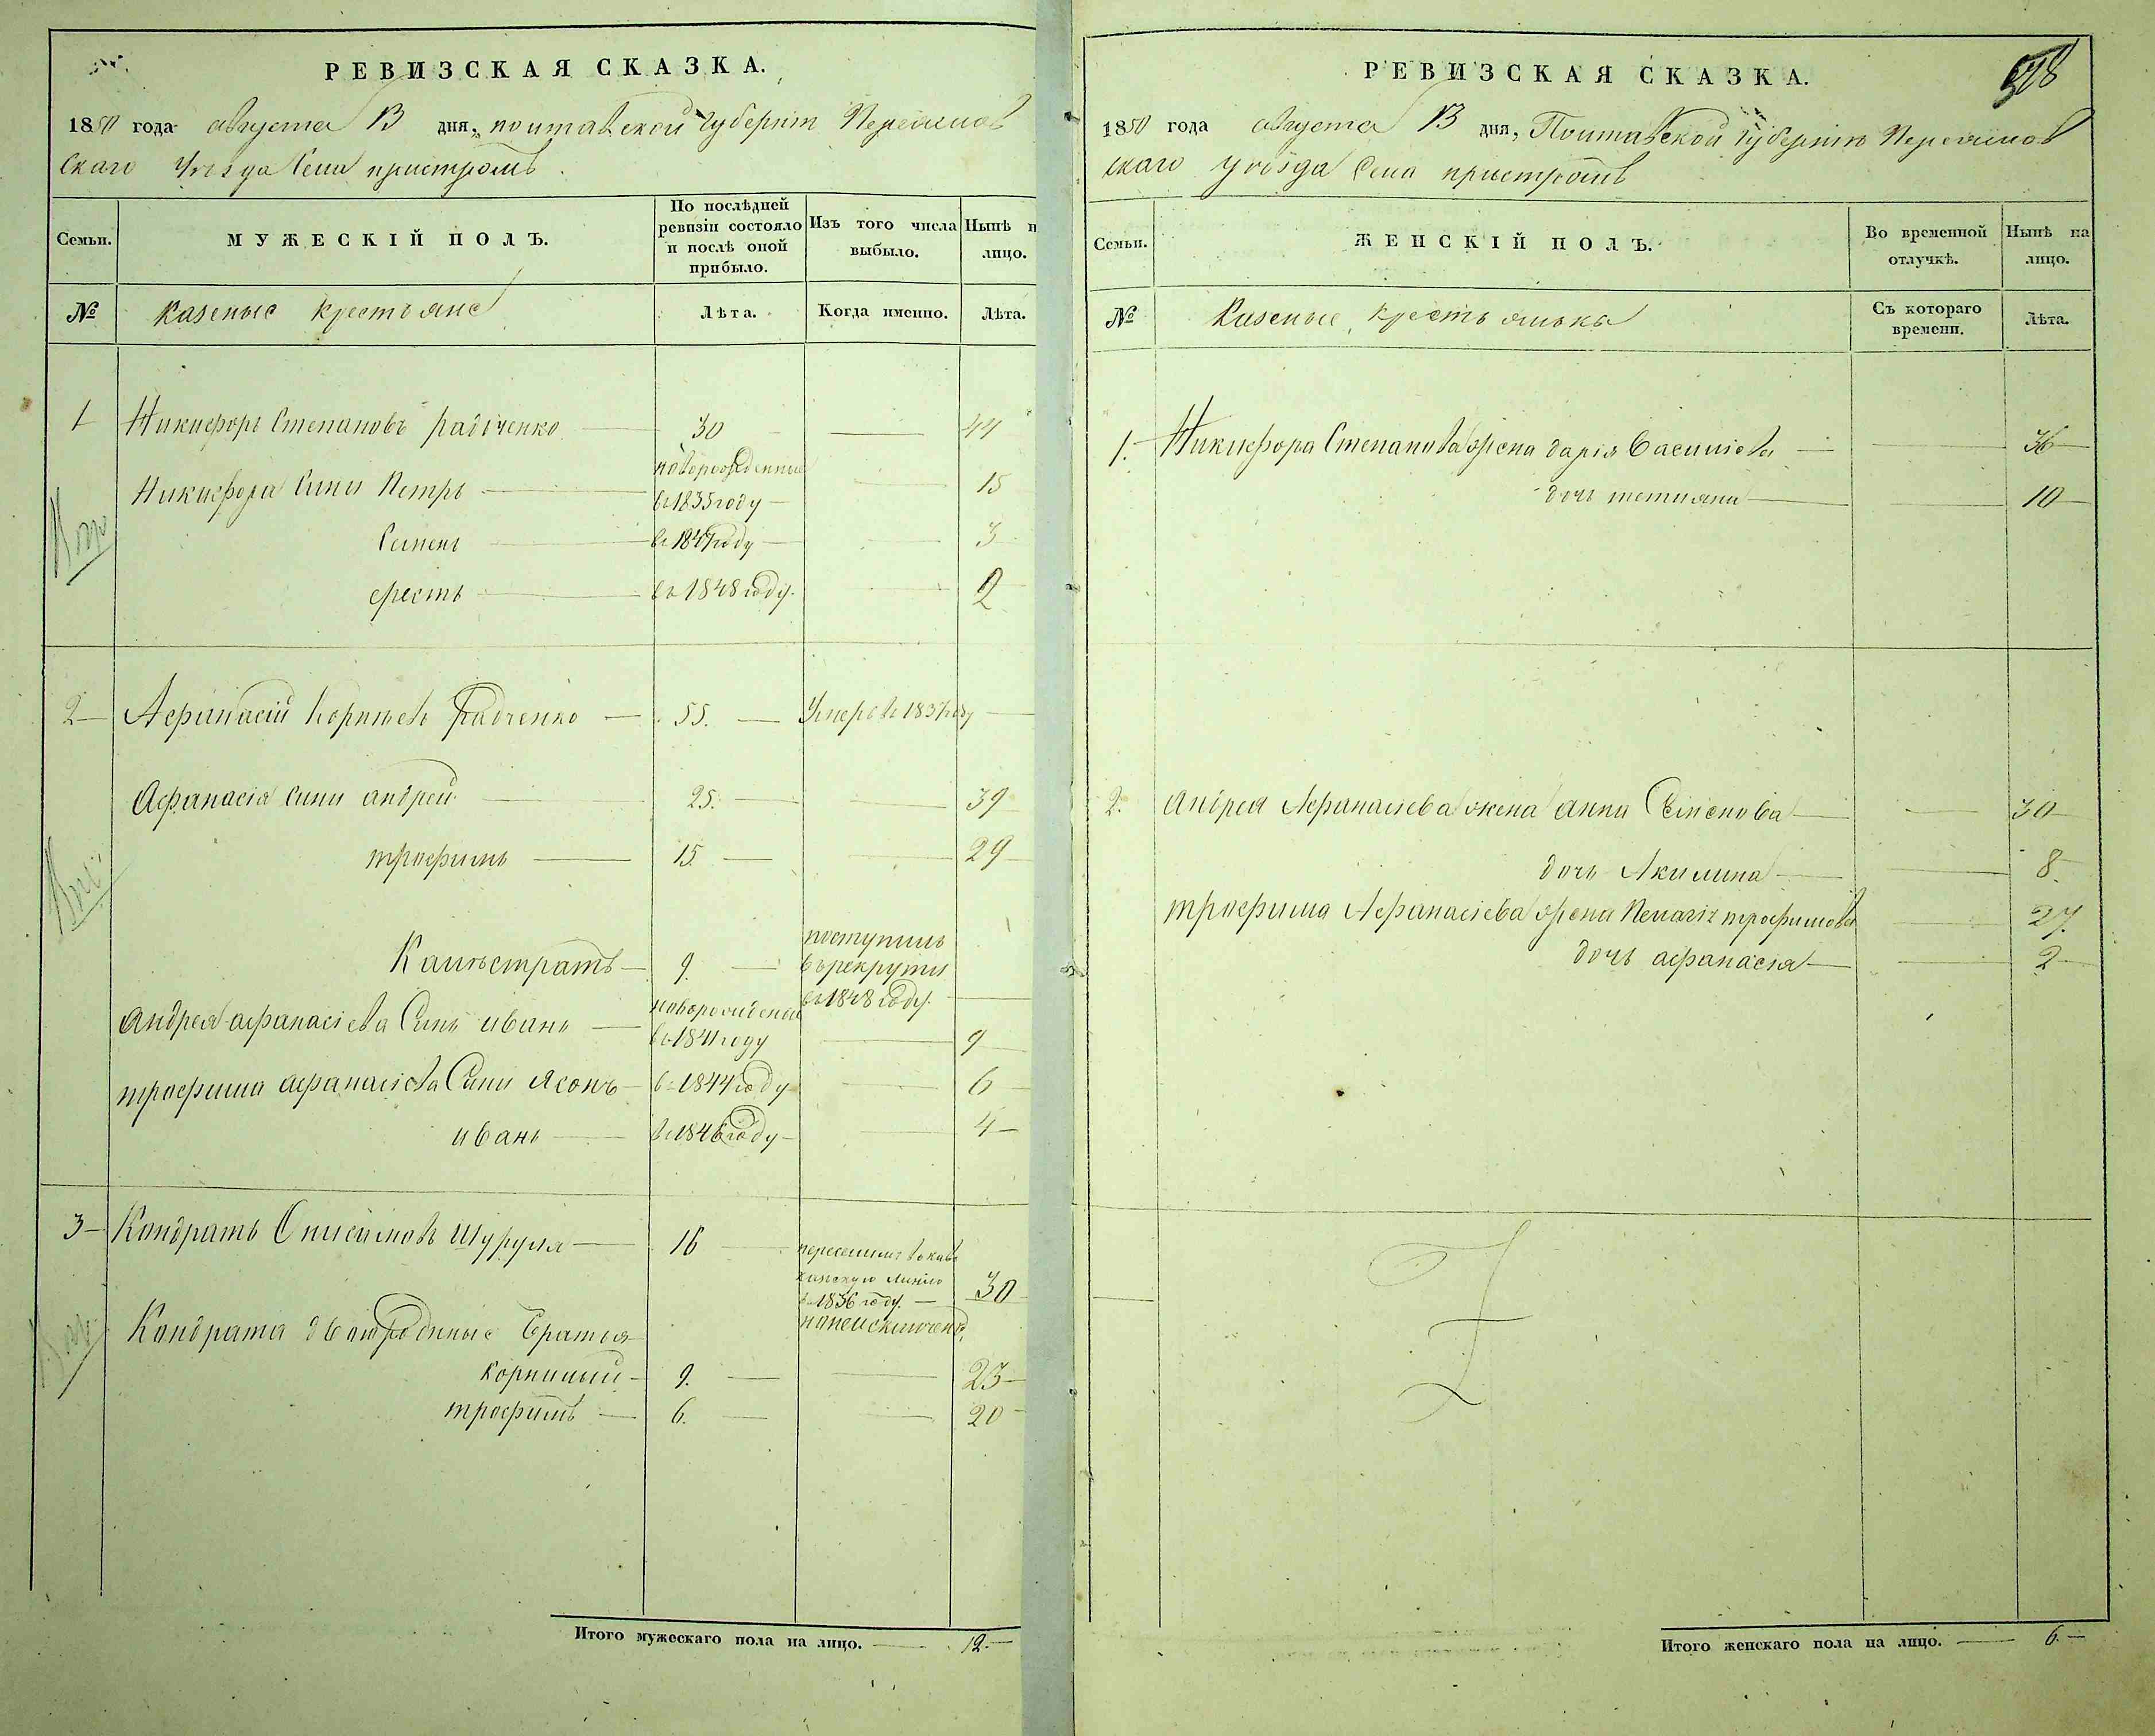 РЕВИЗСКАЯ СКАЗКА.
1850 года августа 13 дня, полтавской губерніи Переяслов
скаго Уезда Села пристромъ
Семьи.
МУЖЕСКІЙ ПОЛЪ.
По послѣдней ревизіи состояло и послѣ оной прибыло.
Изъ того числа выбыло.
Нынѣ н лицо.
№
казеные крестьяне
Лѣта.
Когда именно.
Лѣта.
1 Никифоръ Степановъ радченко 30 44
Никифора Сини Петръ новорожденные в 1835 году 15
Семенъ в 1847 году 3
орестъ в 1848 году. 2
2 Афанасій Корнѣевъ Радченко 55. Умеръ в 1837 году
Афанасія Сини андрей 25. 39
трофимъ 15 29
Калистратъ 9. поступилъ
в рекруты
в 1848 году.
Андрея афанасіева Синъ иванъ новорожденый
в 1841 году 9
трофима афанасіева Сини Ясонъ в 1844 году 6
иванъ в 1846 году 4
3 Кондратъ Онисимовъ Шуруля 16 переселился в кав
казскую линію
в 1836 году. 30
но не исключенъ
Кондрата двоюродные братья
корнилій 9. 23
трофимъ 6. 20
Итого мужескаго пола на лицо. 12.
РЕВИЗСКАЯ СКАЗКА.
1850 года августа 13 дня, Полтавской губерніи Переяслов
скаго уезда Села пристромъ
Семьи.
ЖЕНСКІЙ ПОЛЪ.
Во временной отлучкѣ.
Нынѣ на лицо.
№
Казеные крестьянька
Съ котораго времени.
Лѣта.
1. Никифора Степанова жена дарія Василіева 36
дочь тетияна 10
2. андрея Афанасіева жена анна Семенова 30
дочь Акилина 8.
трофима Афанасіева жена Пелагія трофимова 27.
дочь афанасія 2
Итого женскаго пола на лицо. 6.